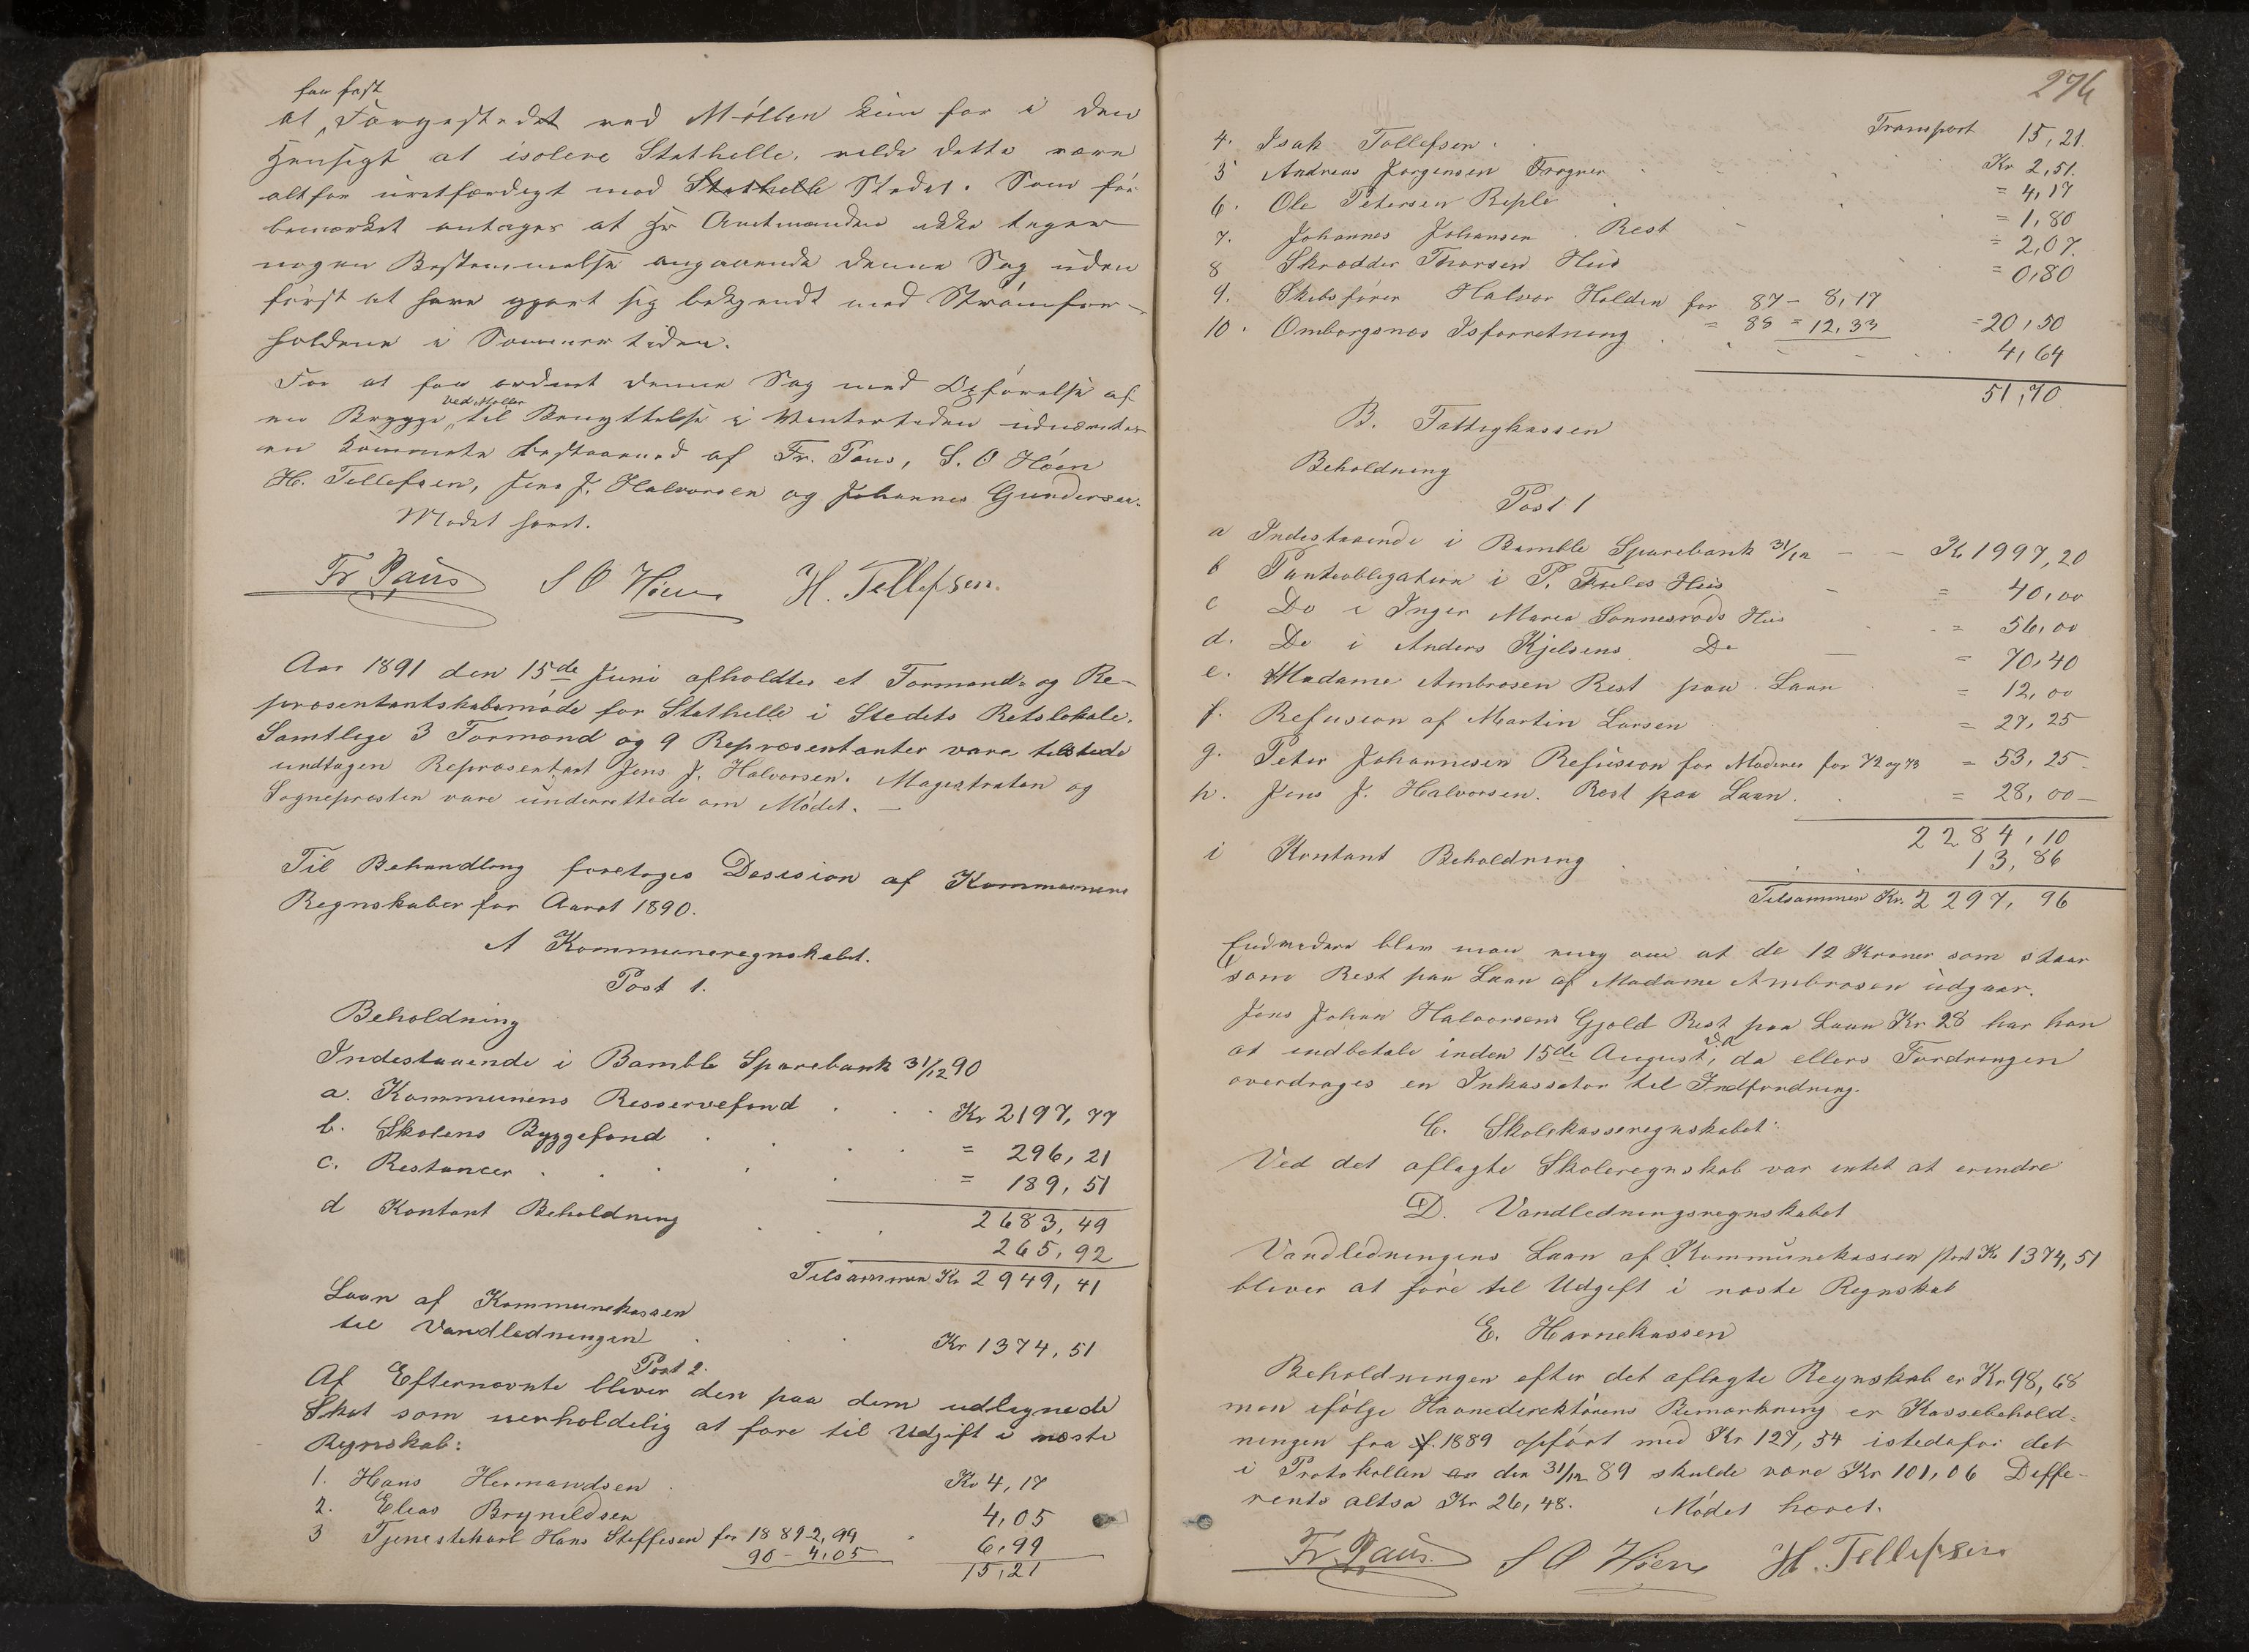 faa fast
at Færgestedet ved Møllen kun for i den
Hensigt at isolere Stathelle, vilde dette være
altfor uretfærdigt mod Stathelle Stedet. Som før
bemærket antages at Hr Amtmanden ikke tager
nogen Bestemmelse angaaende denne Sag uden
først at have gjort sig bekjendt med Strømfor-
holdene i Sommertiden.
For at faa ordnet denne Sag med Opførelse af
ved Møllen
en Brygge til Benyttelse i Vintertiden udnævntes
en Kommite bestaaende af Fr. Paus, S. O Höen
H. Tellefsen, Jens J. Halvorsen og Johannes Gundersen.
Mødet hævet.
Fr Paus S O Höen H. Tellefsen
Aar 1891 den 15de Juni afholdtes et Formand- og Re-
præsentantskabsmøde for Stathelle i Stedets Retslokale.
Samtlige 3 Formænd og 9 Repræsentanter vare tilstede
undtagen Repræsentant Jens J. Halvorsen. Magistraten og
Sognepresten vare underrettede om Mødet. —
Til Behandling foretoges Desision af Kommunens
Regnskaber for Aaret 1890.
A Kommuneregnskabet.
Post 1.
Beholdning
Indestaaende i Bamble Sparebank 31/12 90
a. Kommunens Resservefond . . . Kr 2197,77
b. Skolens Byggefond . . . . = 296,21
c. Restancer . . . . . = 189,51
2683,49
d Kontant Beholdning . . 265,92
Tilsammen Kr 2949,41
Laan af Kommunekassen
til Vandledningen . . . Kr 1374,51
Post 2.
Af Efternævnte bliver den paa dem udlignede
Skat som uerholdelig at føre til Udgift i næste
Regnskab:
1. Hans Hermandsen . Kr 4,17
2. Elias Brynildsen 4,05
3 Tjenestekarl Hans Steffesen for 1889 2,94
90 - 4,05 6,99
15,21
276
Transport 15,21.
4. Isak Tollefsen . . Kr 2,51.
5 Andreas Jørgensen Frogner = 4,17
6. Ole Petersen Reple . = 1,80
7. Johannes Johansen . Rest = 2,07.
8 Skrædder Thorsen Hus = 0,80
9. Skibsfører Halvor Holden for 87 - 8,17
= 88 = 12,33 = 20,50
10. Omborgsnes Isforretning . 4,64
51,70
B. Fattigkassen
Beholdning
Post 1
a Indestaaende i Bamble Sparebank 31/12 - - Kr 1997,20
b Panteobligation i P. Hus = 40,00
c Do i Inger Maria Sannesrøds Hus = 56,00
d. Do i Anders Kjelsens Do = 70,40
e. Madame Ambrosen Rest paa Laan = 12,00
f. Refusion af Martin Larsen = 27,25
g. Peter Johannesen Refusion for Moderen for 72 og 73 = 53,25
h. Jens J. Halvorsen. Rest paa Laan. = 28,00
2284,10
i Kontant Beholdning . . 13,86
Tilsammen Kr. 2297,96
Endvidere blev man enig om at de 12 Kroner som staar
som Rest paa Laan af Madame Ambrosen udgaar.
Jens Johan Halvorsens Gjæld Rest paa Laan Kr 28 har han
at indbetale inden 15de August d. A., da ellers Fordringen
overdrages en Inkassator til Indfordring.
C. Skolekasseregnskabet
Ved det aflagte Skoleregnskab var intet at erindre
D. Vandledningsregnskabet
Vandledningens Laan af Kommunekassen stort Kr 1374,51
bliver at føre til Udgift i næste Regnskab
E. Havnekassen
Beholdningen efter det aflagte Regnskab er Kr 98,68
men ifølge Havnedirektørens Bemærkning er Kassebehold-
ningen fra f. 1889 opført med Kr 127,54 istedefor det
i Protokollen an den 31/12 89 skulde være Kr 101,06 Diffe-
rents altsa Kr 26,48. Mødet hævet.
Fr. Paus. S O Höen H. Tellefsen